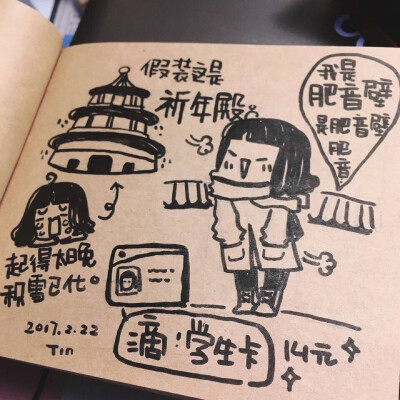 假装这是
祈年殿。
我是
肥音壁
是肥音壁
肥
音
起得太晚
积雪已化。
2017.2.22
Tin
滴·学生卡
14元